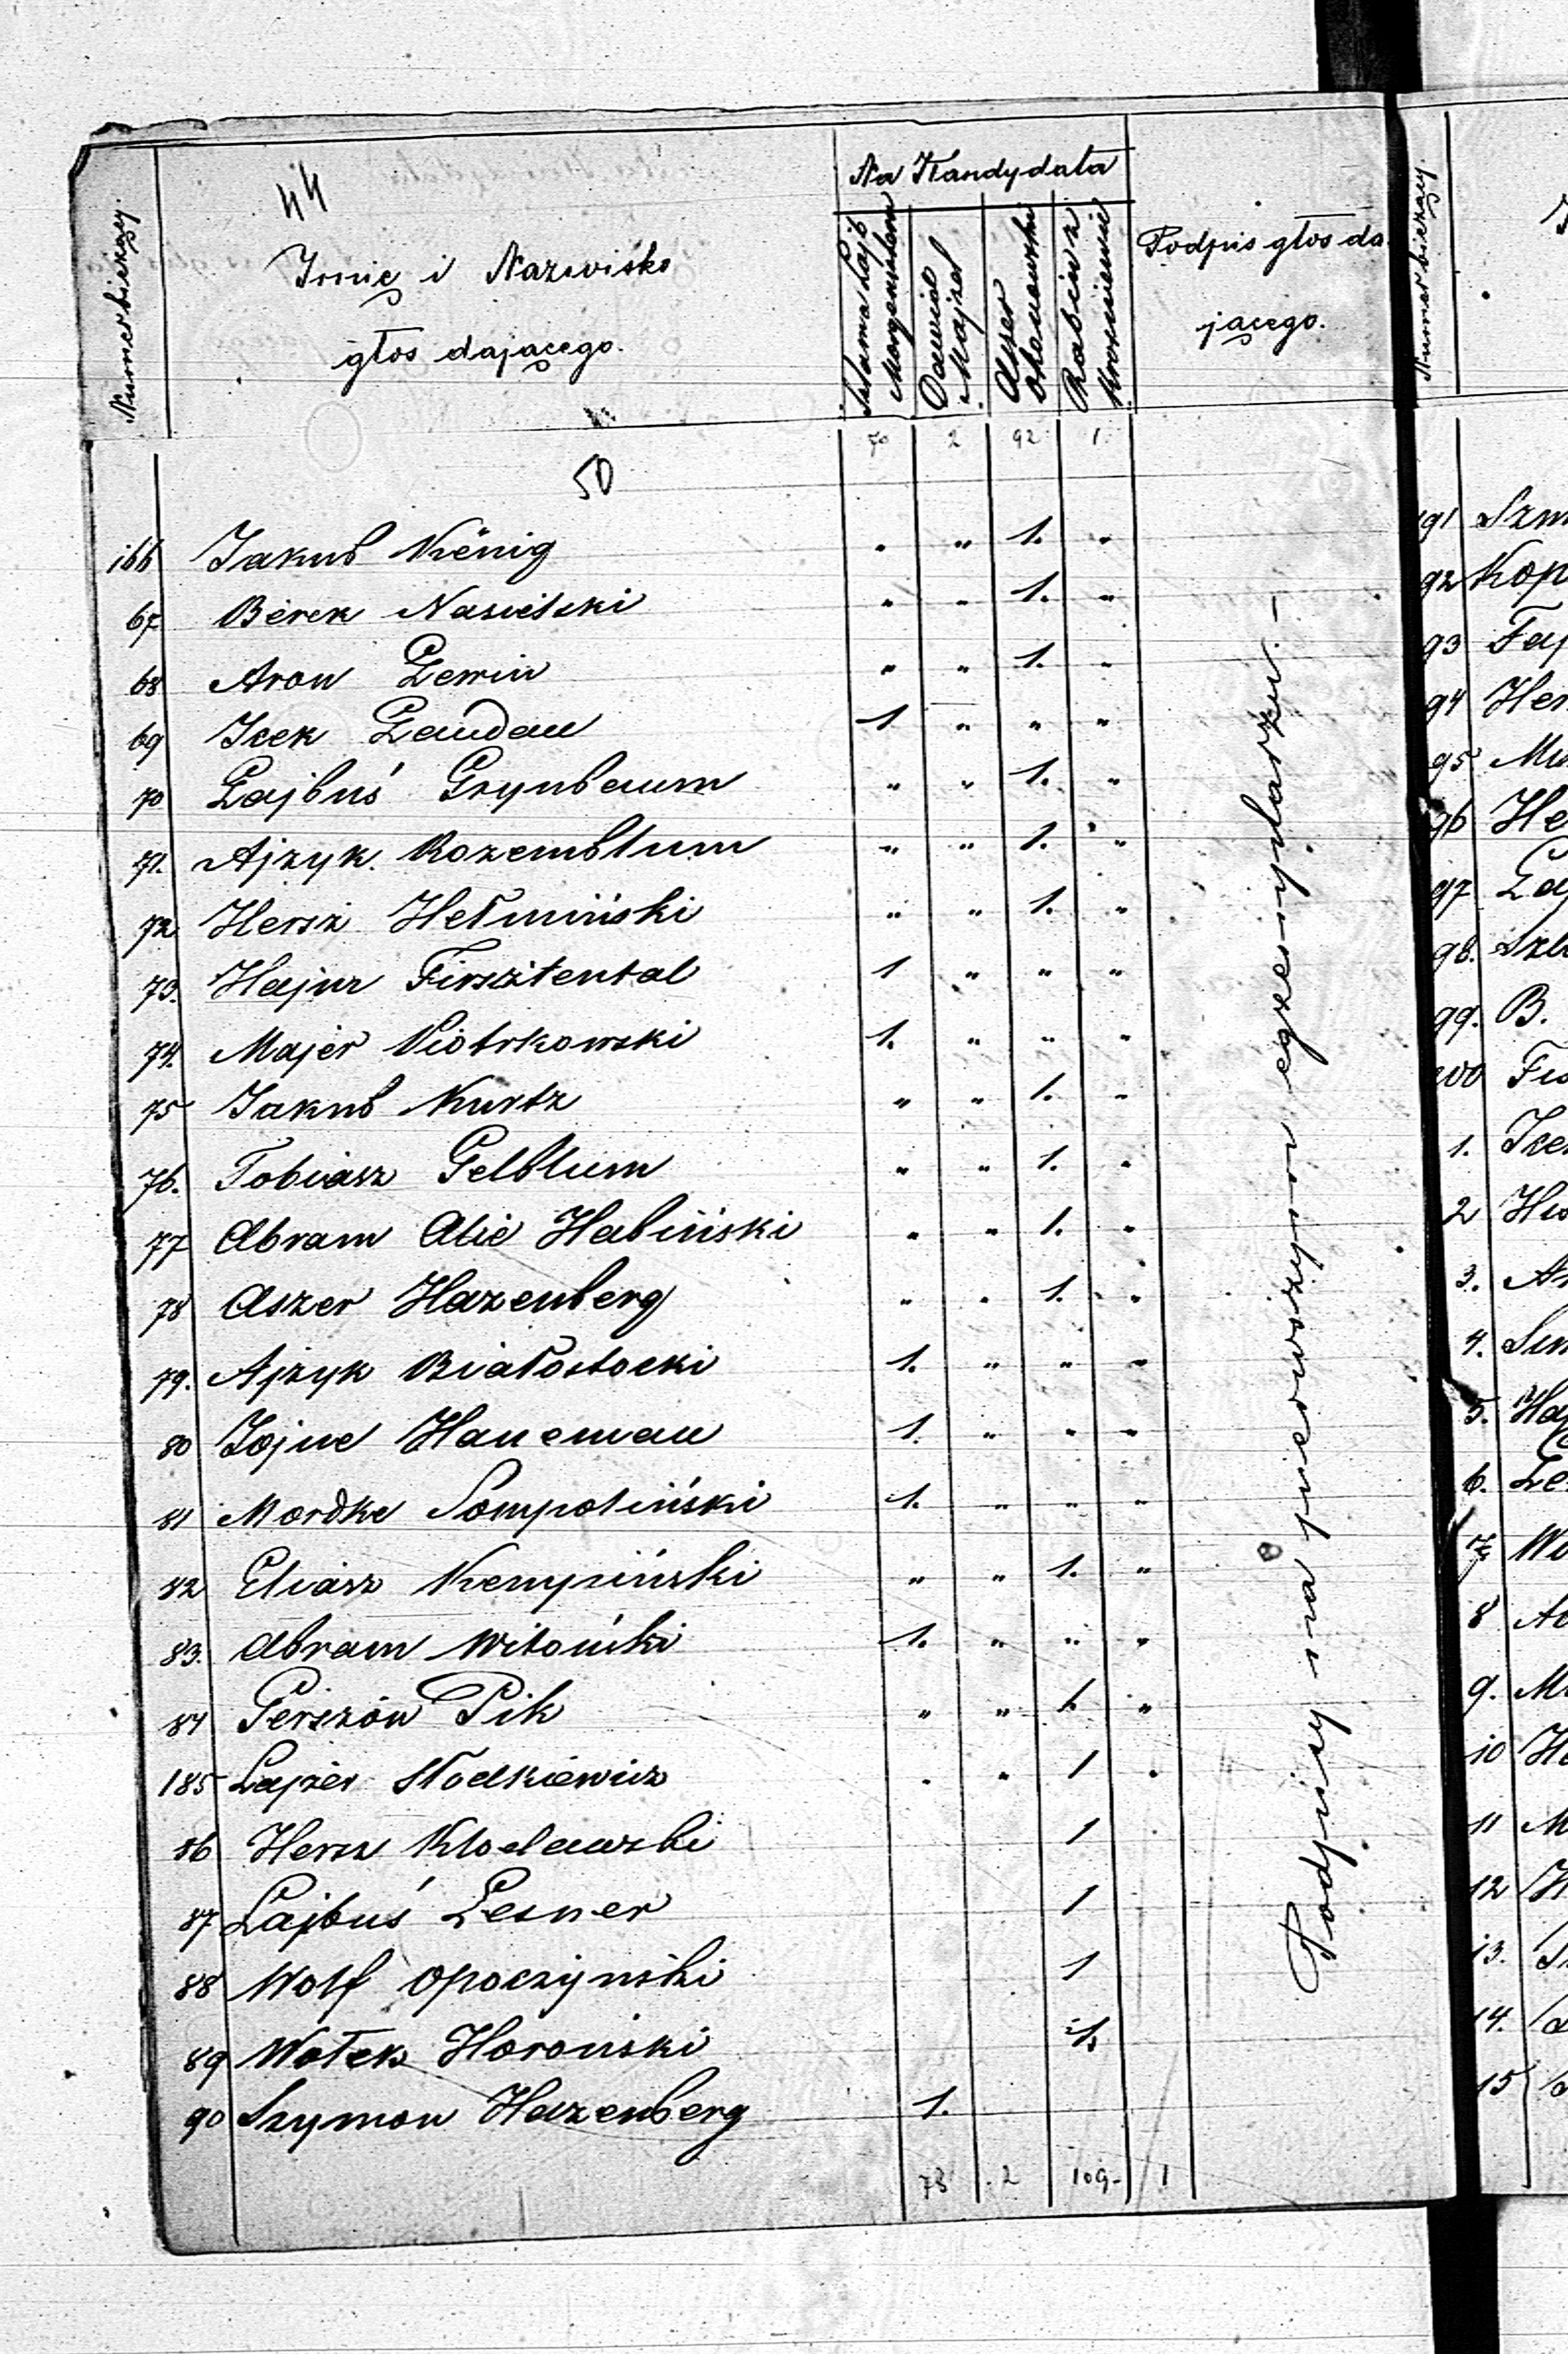 44
Numer bieżący.
Imię i Nazwisko
głos dającego.
Na Kandydata
Szlama Lajb Morgensztern
Dawid Majzel
Rabin z
Podpis głos da
jącego.
70 2 92 1
50
166 Jakub König " " 1. "
67 Berek Nasielski " " 1. "
68 Aron Lewin " " 1. "
69 Icek Landau 1 " " "
70 Lajbuś Grynbaum " " 1. "
71. Ajzyk Rozemblum " " 1. "
72 Hersz Hełmiński " " 1. "
73. Firsztental 1 " " "
74. Majer Piotrkowski 1. " " "
75 Jakub Kurtz " " 1. "
76. Tobiasz Gelblum " " 1. "
77 Abram Alie Habiński " " 1. "
78 Aszer Hazenberg " " 1. "
79. Ajzyk Białostocki 1. " " "
80 Jojne Haneman 1. " " "
81 Mordke Sompoliński 1. " " "
82 Eliasz Kempiński " " 1. "
83. Abram Witoński 1. " " "
84 Gerszon Pik " " 1. "
185 Lajzer Włodkiewicz " " 1 "
86 Hersz Kłodawski 1
87 Lajbuś Lesner 1
88 Wolf Opoczyński 1
89 Wołek Horoński 1.
90 Szymon Hazenberg 1.
78 2 109- 1
Podpisy na pierwszym egzemplarzu. –
Numer bieżący.
191 Szm
92 Kop
93 Faj
94 Her
95
96 He
97 Laj
98. Szl
99. B.
200
1. Ice
2
3.
4.
5. Haj
6. Le
7.
8
9. M
10 He
11 M
12
13.
14.
15